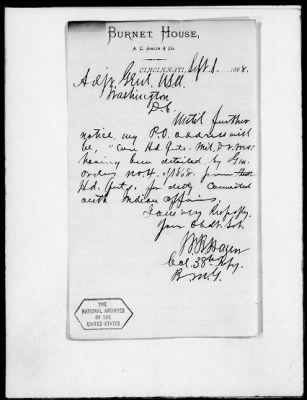 BURNET HOUSE,
A. C. JOSLIN & CO.
CINCINNATI, Sept. 1. 1868.
Adjt Genl. USA
Washington
D.C.
Until further
notice, my P.O. address will
be, "care Hd. Qrs. Mil. Dv. Mo."
having been detailed by Gen.
orders no. 4. of 1868. from that
Hd. Qrts. for duty connected
with Indian affairs.
I am very Respctfy.
Your Obdt. Svt.
W B Hazen
Col. 38th Ify.
B. M. G.
THE
NATIONAL ARCHIVES
OF THE
UNITED STATES